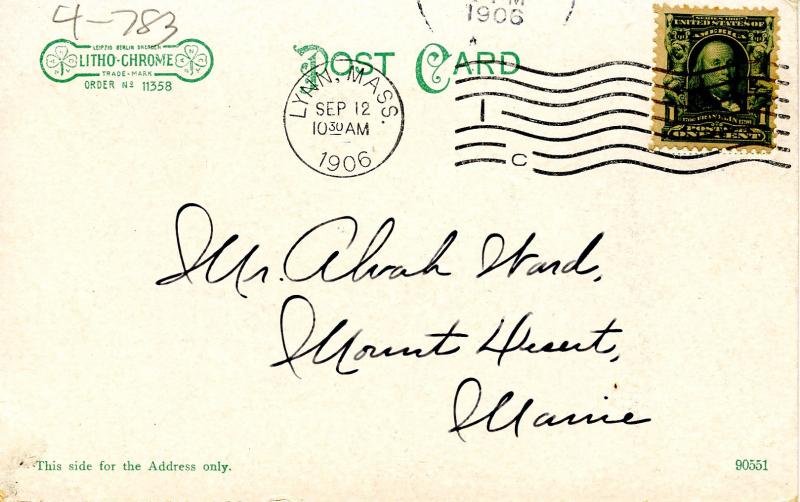 4-783
LEIPZIG BERLIN DRESDEN
LITHO-CHROME
TRADE-MARK
ORDER Nº 11358
POST CARD
M
1906
LYNN, MASS.
SEP 12
10 30 AM
1906
I
C
SERIES 1902
UNITED STATES OF
AMERICA
1 1
FRANKLIN
POSTAGE
ONE CENT
Mr. Alvah Ward,
Mount Desert,
Maine
This side for the Address only.
90551